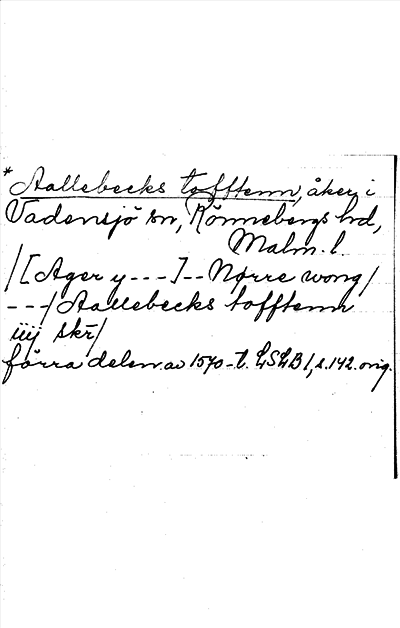 * Aallebecks tofftenn, åker i
Vadensjö sn, Rönnebergs hrd,
Malm. l.
/[Ager y ---]-- Nørre wong/
---/Aallebecks tofftenn
iiij skr̄/
förra delen av 1570-t. LSLB I, s. 142. orig.